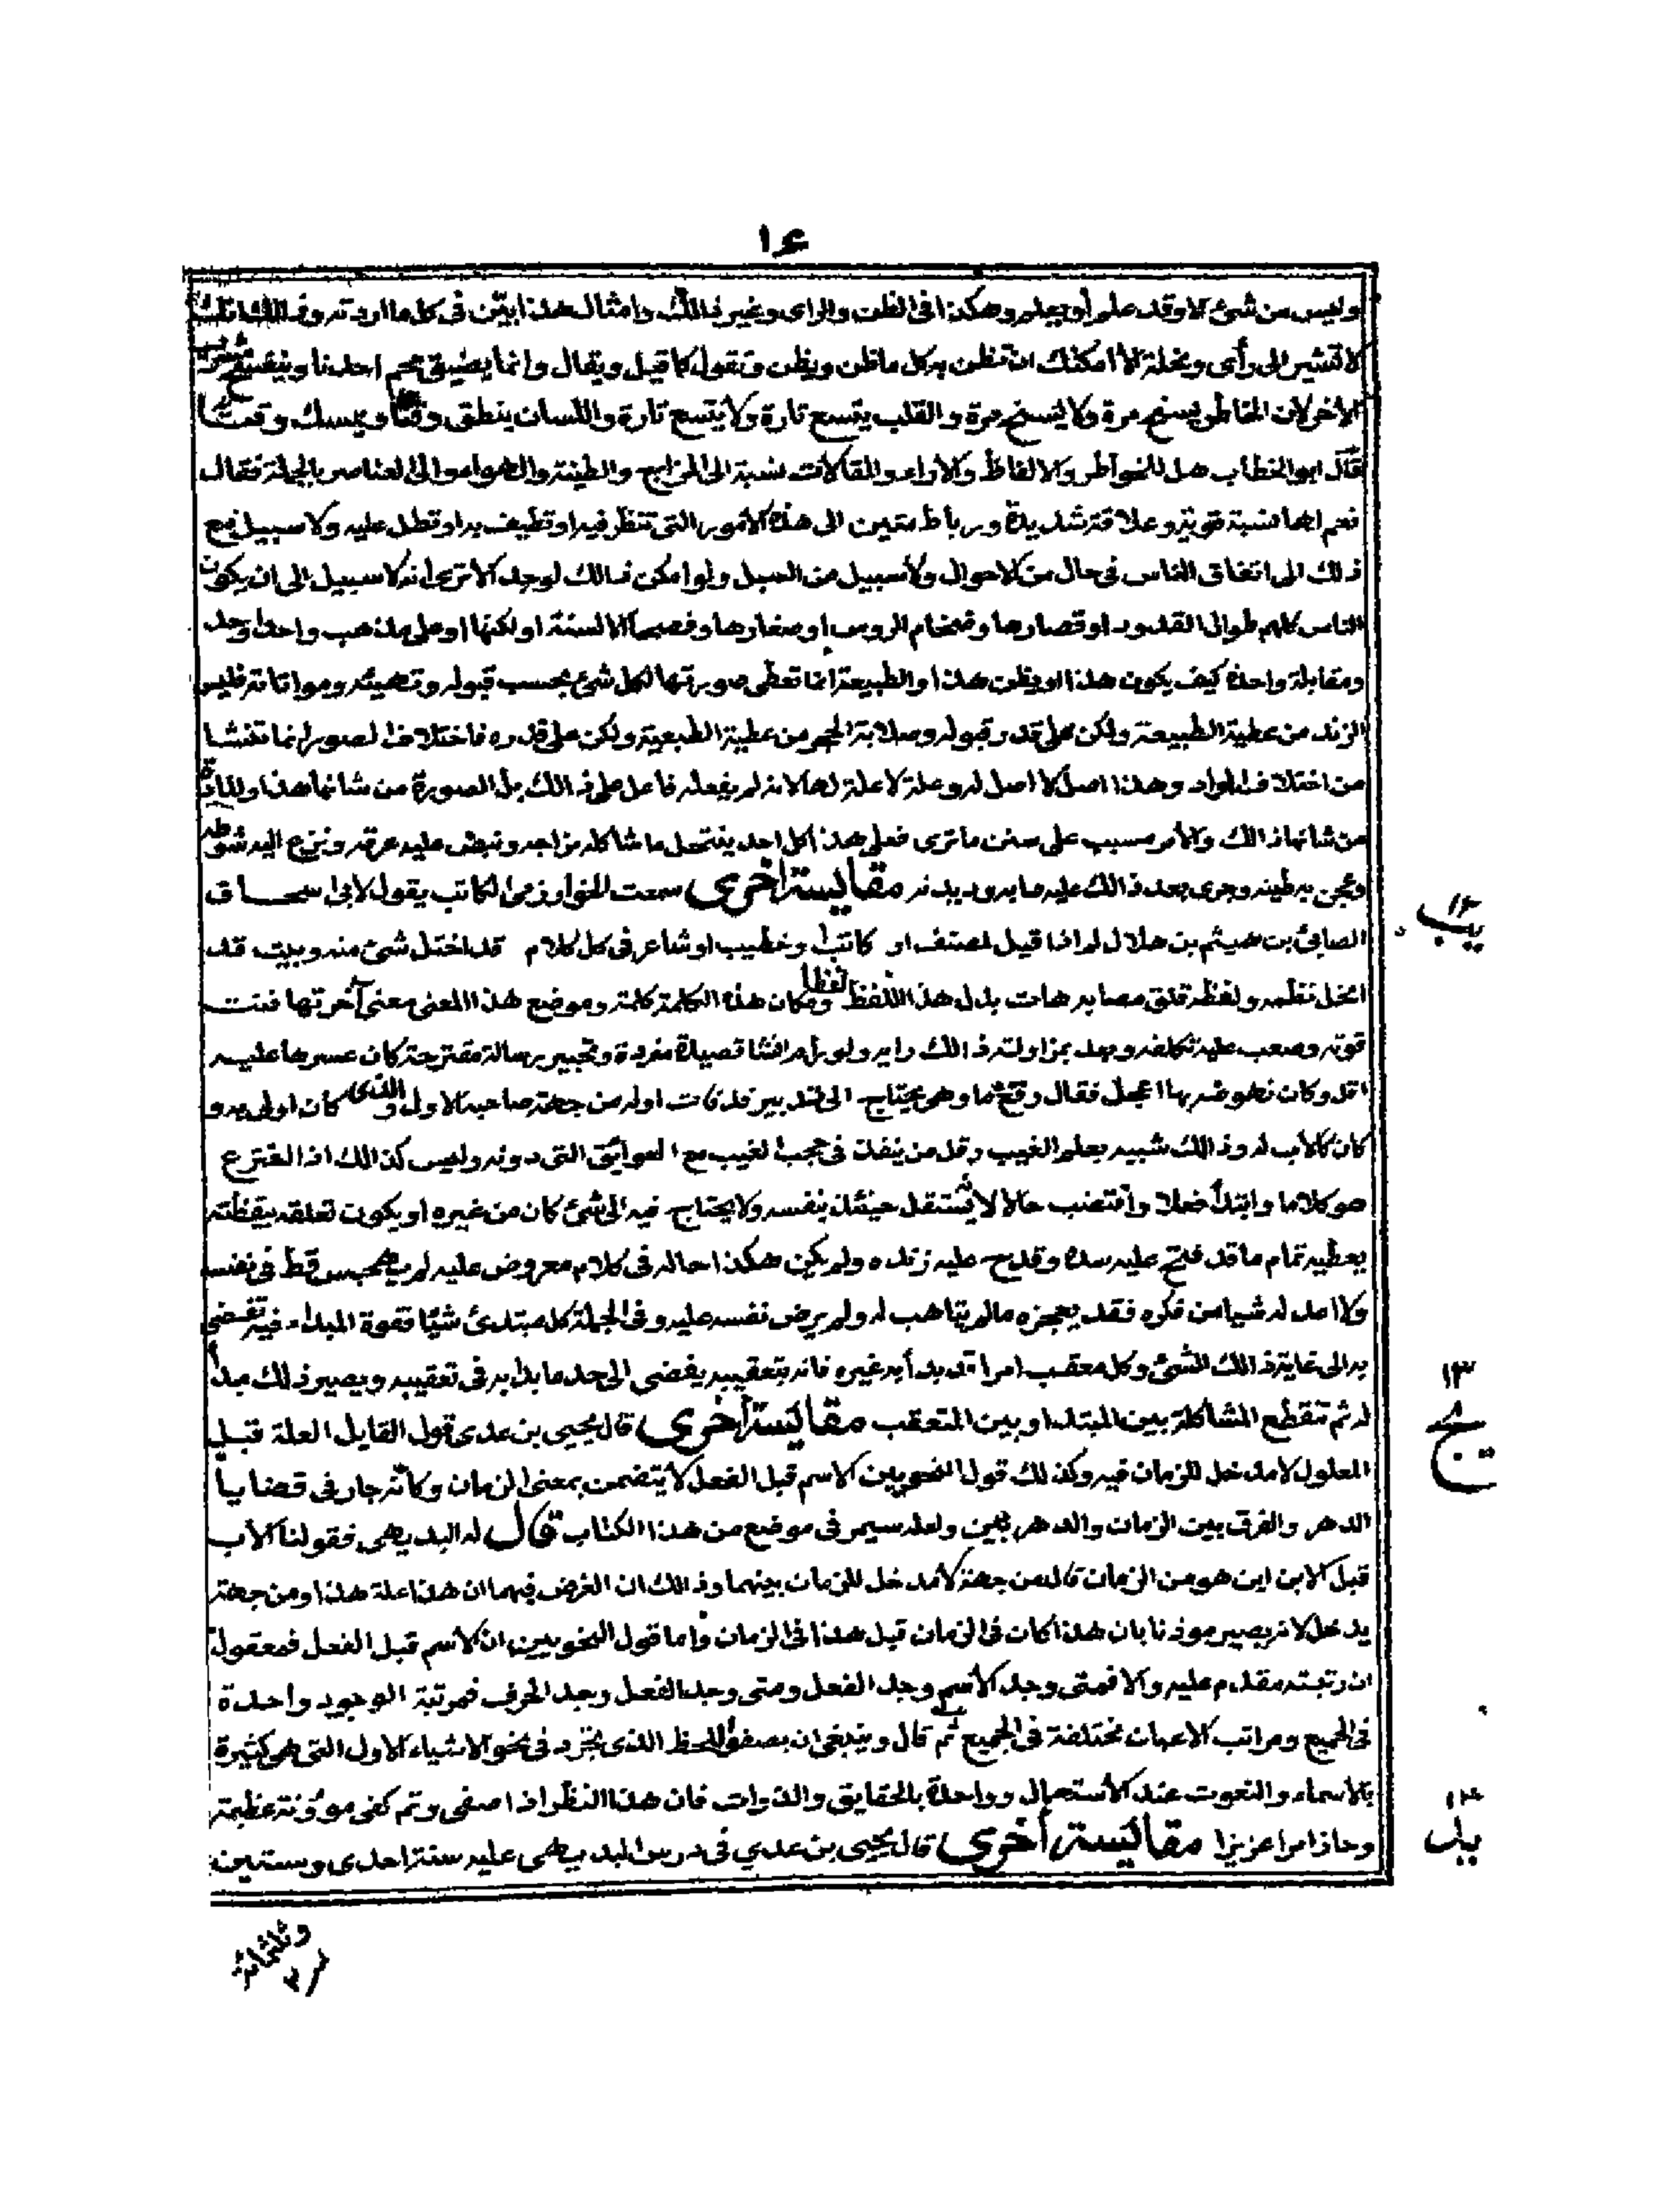 ١٤
وليس من شئ الا وقد علم أو يعلم وهكذا فى الظن والراى وغير ذالك وامثال هذا بيّن فى كل ما اردته وذالك انك
لا تشير الى رأى ونحلة الا امكنك ان تظن به كل ما ظن ويظن وتقول كما قيل ويقال وانما يضيق عم احدنا وينفسخ
الاخر لان الخاطر يسنح مرة ولا يسنح مرة والقلب يتسع تارة ولا يتسع تارة واللسان ينطق وقتا ويمسك وقتا
قال ابو الخطاب هل للخواطر والالفاظ والاراء والمقالات نسبة الى المزاج والطينة والهواء والى العناصر بالجملة فقال
نعم لها نسبة قوية وعلاقة شديدة ورباط متين الى هذه الامور التى تنظر فيه او تطيف به او تطل عليه ولا سبيل مع
ذلك الى اتفاق الناس فى حال من الاحوال ولا سبيل من السبل ولو امكن ذالك لوجد الا ترى انه لا سبيل الى ان يكون
الناس كلهم طوال القدود او قصارها وضخام الروس او صغارها وفصحا الالسنة او لكنها او على مذهب واحد وجد
ومقابلة واحدة كيف يكون هذا او يظن هذا والطبيعة انما تعطى صورتها لكل شئ بحسب قبوله وتهيئه ومواتاته فليس
الزند من عطية الطبيعة ولكن على قدر قبوله وصلابة الحجر من عطية الطبيعة ولكن على قدره فاختلاف الصور انما تنشا
من اختلاف المواد وهذا اصل لا اصل له وعلة لا علة لها لانه لم يفعله فاعل على ذالك بل الصورة من شانها هذا والمادة
من شانها ذالك والامر مسبب على سنن ما ترى فعلى هذا كل احد ينتحل ما شاكله مزاجه ونبض عليه عرقه ونزع اليه شوطه
وعجن به طينه وجرى بعد ذالك عليه مقايسة اخرى سمعت الخوارزمى الكاتب يقول لابى اسحاق
الصابئ بن هيثم بن هلال لم اذا قيل لمصنف او كاتب او خطيب او شاعر فى كل كلام قد اختل شئ منه وبيت قد
انحل نظمه ولفظ قلق مصابه هات بدل هذا اللفظ لفظا ومكان هذه الكلمة كلمة وموضع هذا المعنى معنى آخر تهافتت
قوته وصعب عليه تكلفه وبعد بمزاولته ذالك رايه ولو رام انشا قصيدة مفردة وتحبير رسالة مقترحة كان عسرها عليه
اقل وكان نهوضه بها اعجل فقال وهى يحتاج الى تدبير قد فات اوله من جهة صاحبه الاول والذى كان اولى به و
كان كالاب له وذالك شبيه بعلم الغيب وقل من ينفذ فى حجب الغيب مع العوائق التى دونه وليس كذالك اذا افترع
هو كلاما وابتدأ فعلا واقتضب حالا لانه يستقل حينئذ بنفسه ولا يحتاج فيه الى شئ كان من غيره او يكون تعلقه بيقظته
يعطيه تمام ما قد فتح عليه سده وقدح عليه زنده ولم يكن هكذا حاله فى كلام معروض عليه لم يهجس قط فى نفسه
ولا اعد له شيا من فكره فقد يعجزه ما لم يتاهب له ولم يرض نفسه عليه وفى الجملة كل مبتدئ شيئا فقوة المبداء فيه تفضى
به الى غاية ذالك الشئ وكل معقب امرا قد بدأ به غيره فانه بتعقيبه يفضى الى حد ما بدا به فى تعقيبه ويصير ذلك مبدأ
له ثم تنقطع المشاكلة بين المبتدا وبين المتعقب مقايسة أخرى قال يحيى بن عدى قول القايل العلة قبل
المعلول لا مدخل للزمان فيه وكذلك قول النحويين الاسم قبل الفعل لا يتضمن بمعنى الزمان وكانه جار فى قضايا
الدهر والفرق بين الزمان والدهر بين ولعله سيمر فى موضع من هذا الكتاب قال له البديهى فقولنا الأب
قبل الابن اين هو من الزمان قال من جهة لا مدخل للزمان بينهما وذالك ان الغرض فيهما ان هذا علة هذا ومن جهة
يدخل لانه يصير موذنا بان هذا كان فى الزمان قبل هذا فى الزمان واما قول النحويين ان الاسم قبل الفعل فمعقول
ان رتبته مقدم عليه والا فمتى وجد الاسم وجد الفعل ومتى وجد الفعل وجد الحرف فمرتبة الوجود واحدة
فى الجميع ومراتب الاعيان مختلفة فى الجميع ثم قال وينبغى ان يصفو اللحظ الذى يجرد فى نحو الاشياء الاول التى هى كثيرة
بالاسماء والنعوت عند الاستعمال وواحدة بالحقايق والذوات فان هذا النظر اذا صفى وتم كفى موؤنة عظيمة
وحاز امرا عزيزا مقايسة أخرى قال يحيى بن عدي فى درس البديهى عليه سنة احدى وستين
١٢
يب
١٣
يج
١٤
يد
وثلثمائة